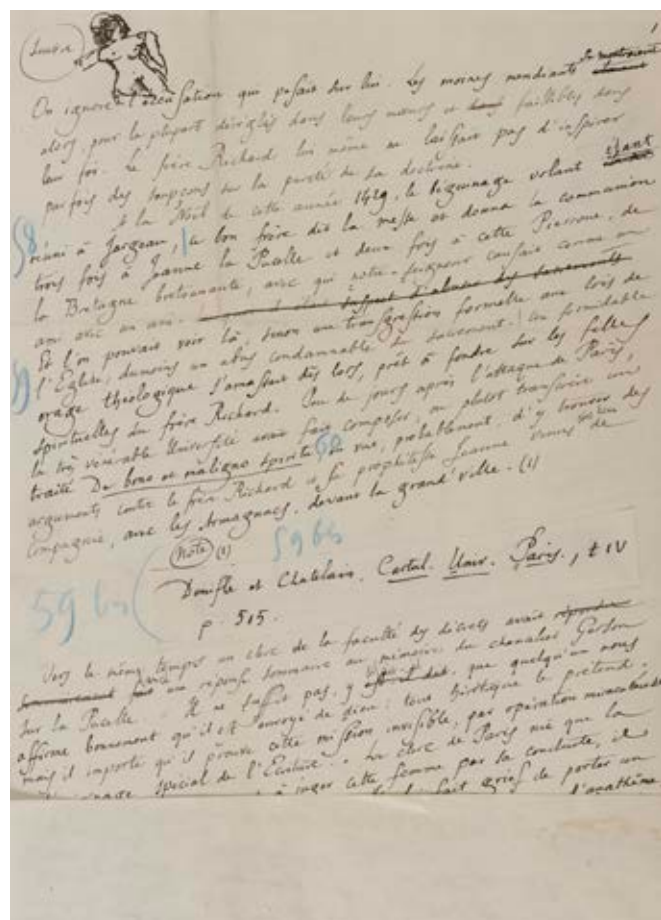 Louvre
1
On ignore l'accusation qui pesait sur lui. Les moines mendiants se montraient
alors, pour la plupart déréglés dans leurs mœurs et faillibles dans
leur foi. Le frère Richard lui même ne laissait pas d'inspirer
parfois des soupçons sur la pureté de sa doctrine.
58 A la Noël de cette année 1429, le béguinage volant étant
réuni à Jargeau, le bon frère dit la messe et donna la communion
trois fois à Jeanne la Pucelle et deux fois à cette Pierrone, de
la Bretagne bretonnante, avec qui notre seigneur causait comme un
ami avec un ami.
Et l'on pouvait voir là, sinon une transgression formelle aux lois de
l'Eglise, du moins un abus condamnable du sacrement. Un formidable
orage théologique s'amassait dès lors, prêt à fondre sur les filles
spirituelles du frère Richard. Peu de jours après l'attaque de Paris,
la très vénérable Université avait fait composer, ou plutôt transcrire un
traité De bono et maligno spiritu en vue, probablement, d'y trouver des
arguments contre le frère Richard et sa prophétesse Jeanne venus de
compagnie, avec les Armagnacs, devant la grand'ville. (1)
Note (1)
59 bis
Denifle et Chatelain. Cartul. Univ. Paris., t IV
59 bis
p. 515.
Vers le même temps un clerc de la faculté des décrets avait
une réponse sommaire au mémoire du chancelier Gerson
sur la Pucelle. Il ne suffit pas, y que quelqu'un nous
affirme bonnement qu'il est envoyé de dieu; tout hérétique le prétend.
mais il importe qu'il prouve cette mission invisible, par opération miraculeuse
special de l'Ecriture. Le clerc de Paris nie que la
à juger cette femme par la conduite, il
fait grief de porter un
l'anathème